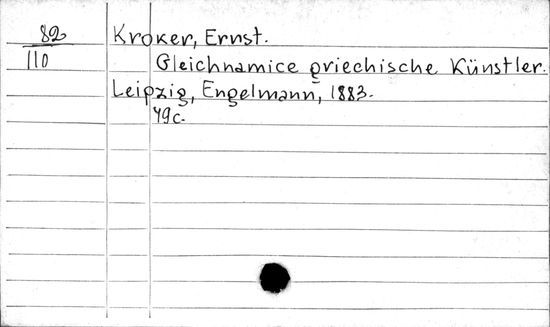 82 Kroker, Ernst.
110 Gleichnamice griechische Künstler.
Leipzig, Engelmann, 1883.
49c.